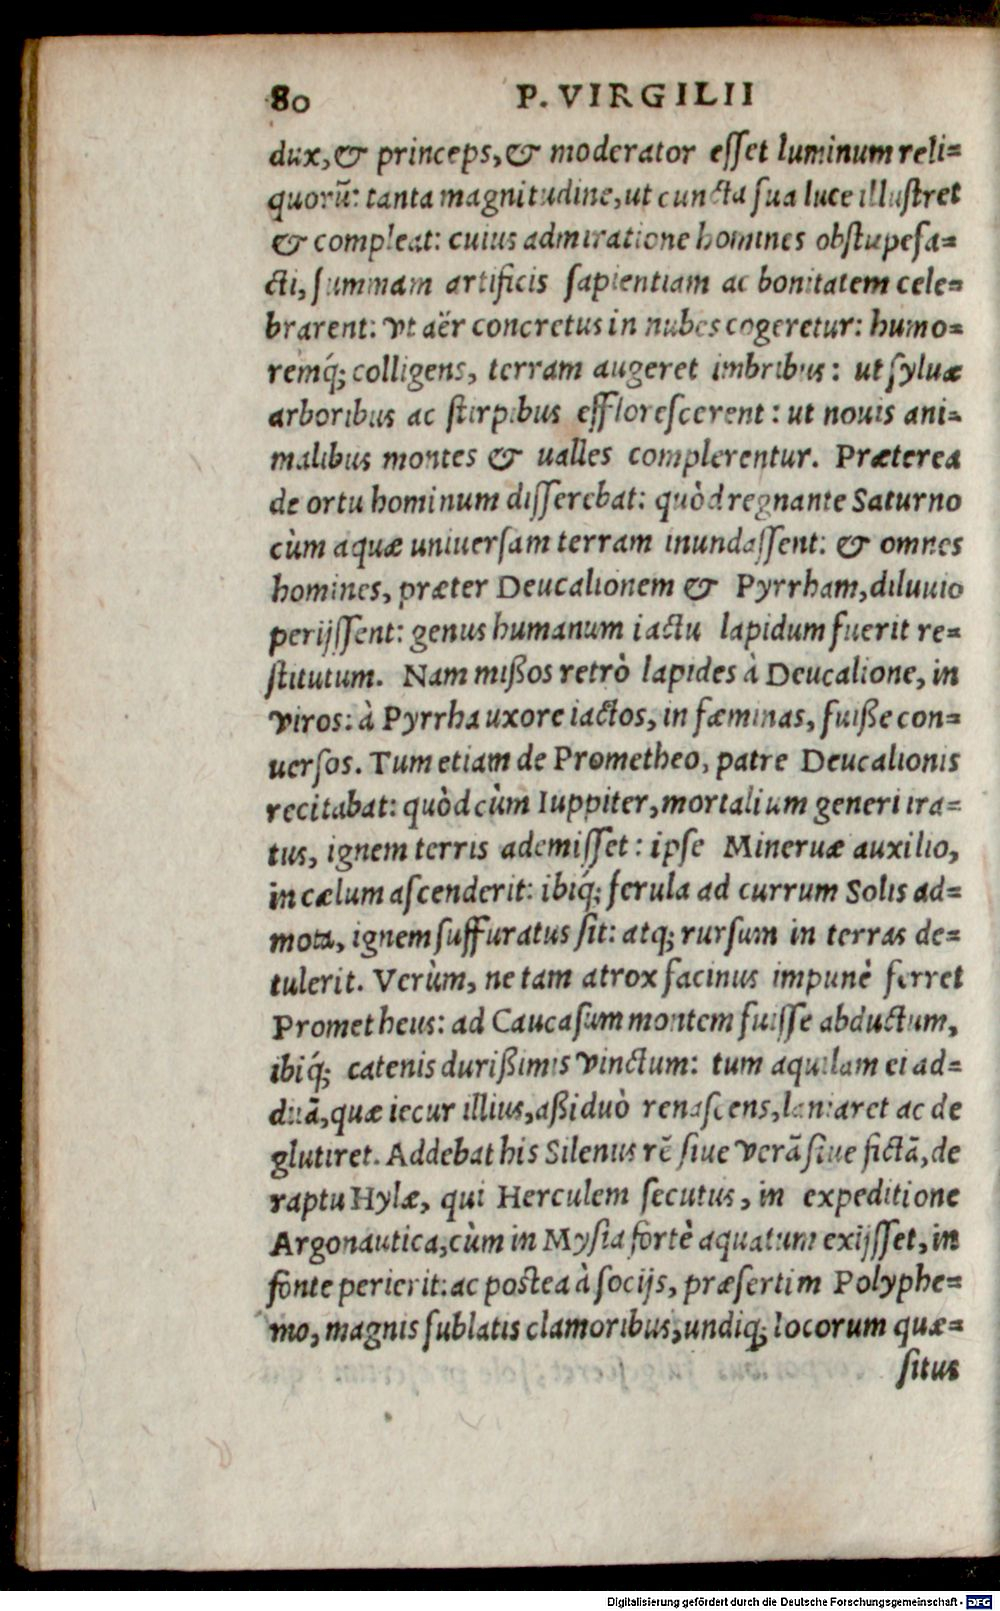 80 P. VIRGILII
dux, & princeps, & moderator esset luminum reli=
quorũ: tanta magnitudine, ut cuncta sua luce illustret
& compleat: cuius admiratione homines obstupefa=
cti, summam artificis sapientiam ac bonitatem cele=
brarent: Vt aër concretus in nubes cogeretur: humo=
remq́; colligens, terram augeret imbribus: ut syluæ
arboribus ac stirpibus efflorescerent: ut nouis ani=
malibus montes & ualles complerentur. Præterea
de ortu hominum disserebat: quòd regnante Saturno
cùm aquæ uniuersam terram inundassent: & omnes
homines, præter Deucalionem & Pyrrham, diluuio
perijssent: genus humanum iactu lapidum fuerit re=
stitutum. Nam mißos retrò lapides à Deucalione, in
viros: à Pyrrha uxore iactos, in fæminas, fuiße con=
uersos. Tum etiam de Prometheo, patre Deucalionis
recitabat: quòd cùm Iuppiter, mortalium generi ira=
tus, ignem terris ademisset: ipse Mineruæ auxilio,
in cælum ascenderit: ibiq́; ferula ad currum Solis ad=
mota, ignem suffuratus sit: atq; rursum in terras de=
tulerit. Verùm, ne tam atrox facinus impunè ferret
Prometheus: ad Caucasum montem fuisse abductum,
ibiq́; catenis durißimis vinctum: tum aquilam ei ad=
ditã, quæ iecur illius, aßiduò renascens, laniaret ac de
glutiret. Addebat his Silenus rẽ siue verã siue fictã, de
raptu Hylæ, qui Herculem secutus, in expeditione
Argonautica, cùm in Mysia fortè aquatum exijsset, in
fonte perierit: ac postea à socijs, præsertim Polyphe=
mo, magnis sublatis clamoribus, undiq; locorum quæ=
situs
Digitalisierung gefördert durch die Deutsche Forschungsgemeinschaft - DFG